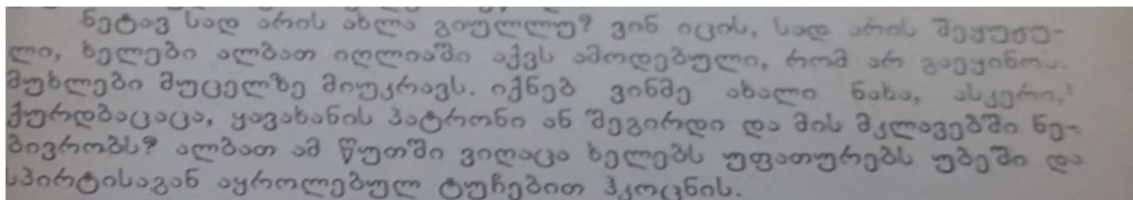 ნეტავ სად არის ახლა გიულლუ? ვინ იცის, სად არის შეყუჟუ-
ლი, ხელები ალბათ იღლიაში აქვს ამოდებული, რომ არ გაეყინოს.
მუხლები მუცელზე მიუკრავს. იქნებ ვინმე ახალი ნახა, ასკერი,
ქურდბაცაცა, ყავახანის პატრონი ან შეგირდი და მის მკლავებში ნე-
ბივრობს? ალბათ ამ წუთში ვიღაცა ხელებს უფათურებს უბეში და
სპირტისაგან აყროლებულ ტუჩებით ჰკოცნის.